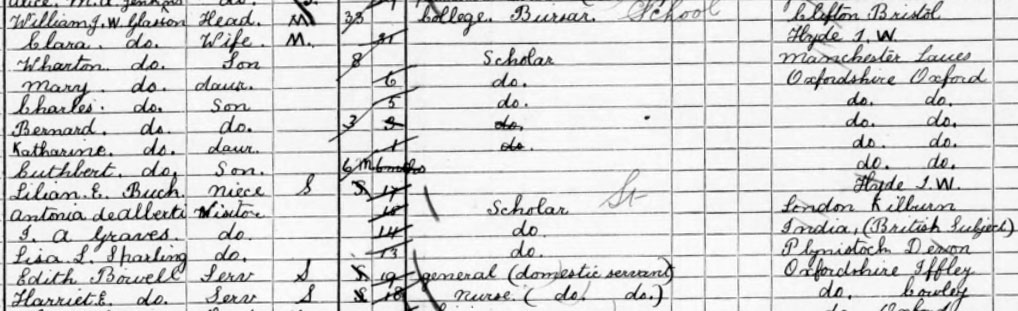 William J. W. Glasson Head. M 33 College. Bursar. School Clifton Bristol
Clara. do. Wife. M. 31 Hyde I. W.
Wharton do. Son 8 Scholar Manchester Lancs
Mary. do. daur. 6 do. Oxfordshire Oxford
Charles. do. Son 5 do. do. do.
Bernard. do. do. 3 3 do. do. do.
Katharine. do. daur. 1 do. do. do.
Cuthbert do, Son. 6 m 6 mths do. do.
Lilian. E. Buch. niece S S 17 St Hyde I. W.
Antonia de Alberti Visitor 15 Scholar London Kilburn
I. A Graves do. 14 do. India, (British Subject)
Lisa. L. Sparling do. 13 do. Plymstock Devon
Edith Bowell Serv S S 19 general (domestic servant) Oxfordshire Iffley
Harriet E. do. Serv S S 18 Nurse. ( do. do.) do. Cowley